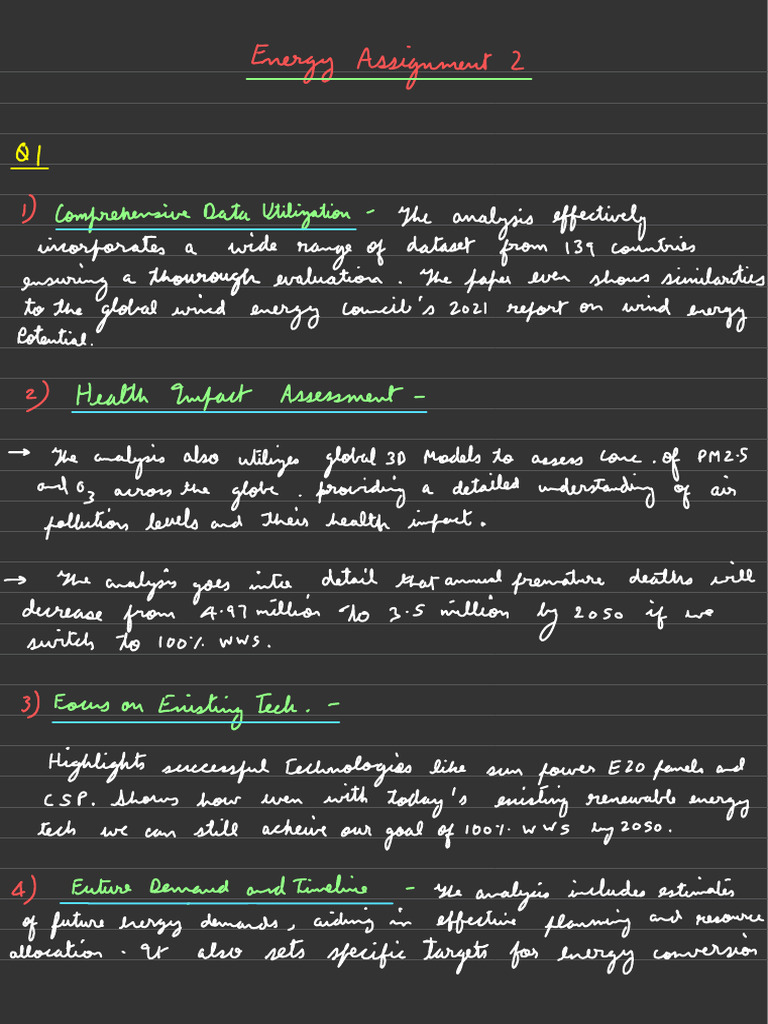 Energy Assignment 2
Q1
1) Comprehensive Data Utilization - The analysis effectively
incorporates a wide range of dataset from 139 countries
ensuring a thourough evaluation. The paper even shows similarities
to the global wind energy council's 2021 report on wind energy
Potential.
2) Health Impact Assessment -
→ The analysis also utilizes global 3D Models to assess conc. of PM2.5
and O3 across the globe. providing a detailed understanding of air
pollution levels and their health impact.
→ The analysis goes into detail that annual premature deaths will
decrease from 4.97 million to 3.5 million by 2050 if we
switch to 100% WWS.
3) Focus on Existing Tech. -
Highlights successful Technologies like sun power E20 panels and
CSP. Shows how even with today's existing renewable energy
tech we can still acheive our goal of 100% WWS by 2050.
4) Future Demand and Timeline - The analysis includes estimates
of future energy demands, aiding in effective planning and resource
allocation. It also sets specific targets for energy conversion